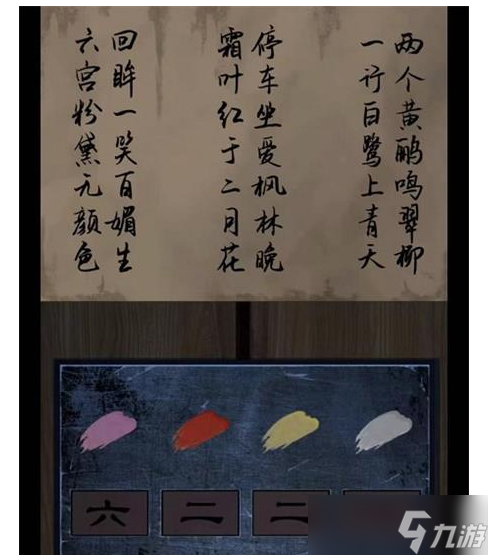 两个黄鹂鸣翠柳
一行白鹭上青天
停车坐爱枫林晚
霜叶红于二月花
回眸一笑百媚生
六宫粉黛无颜色
六 二 二
九游